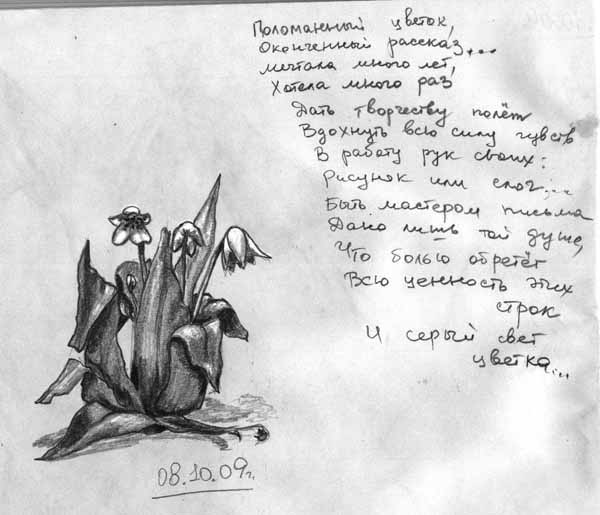 Поломанный цветок,
Оконченный рассказ...
Мечтала много лет,
Хотела много раз
Дать творчеству полёт
Вдохнуть всю силу чувств
В работу рук своих:
Рисунок или слог...
Быть мастером письма
Дано лишь той душе,
Что болью обретёт
Всю ценность этих
строк
И серый свет
цветка...
08.10.09г.